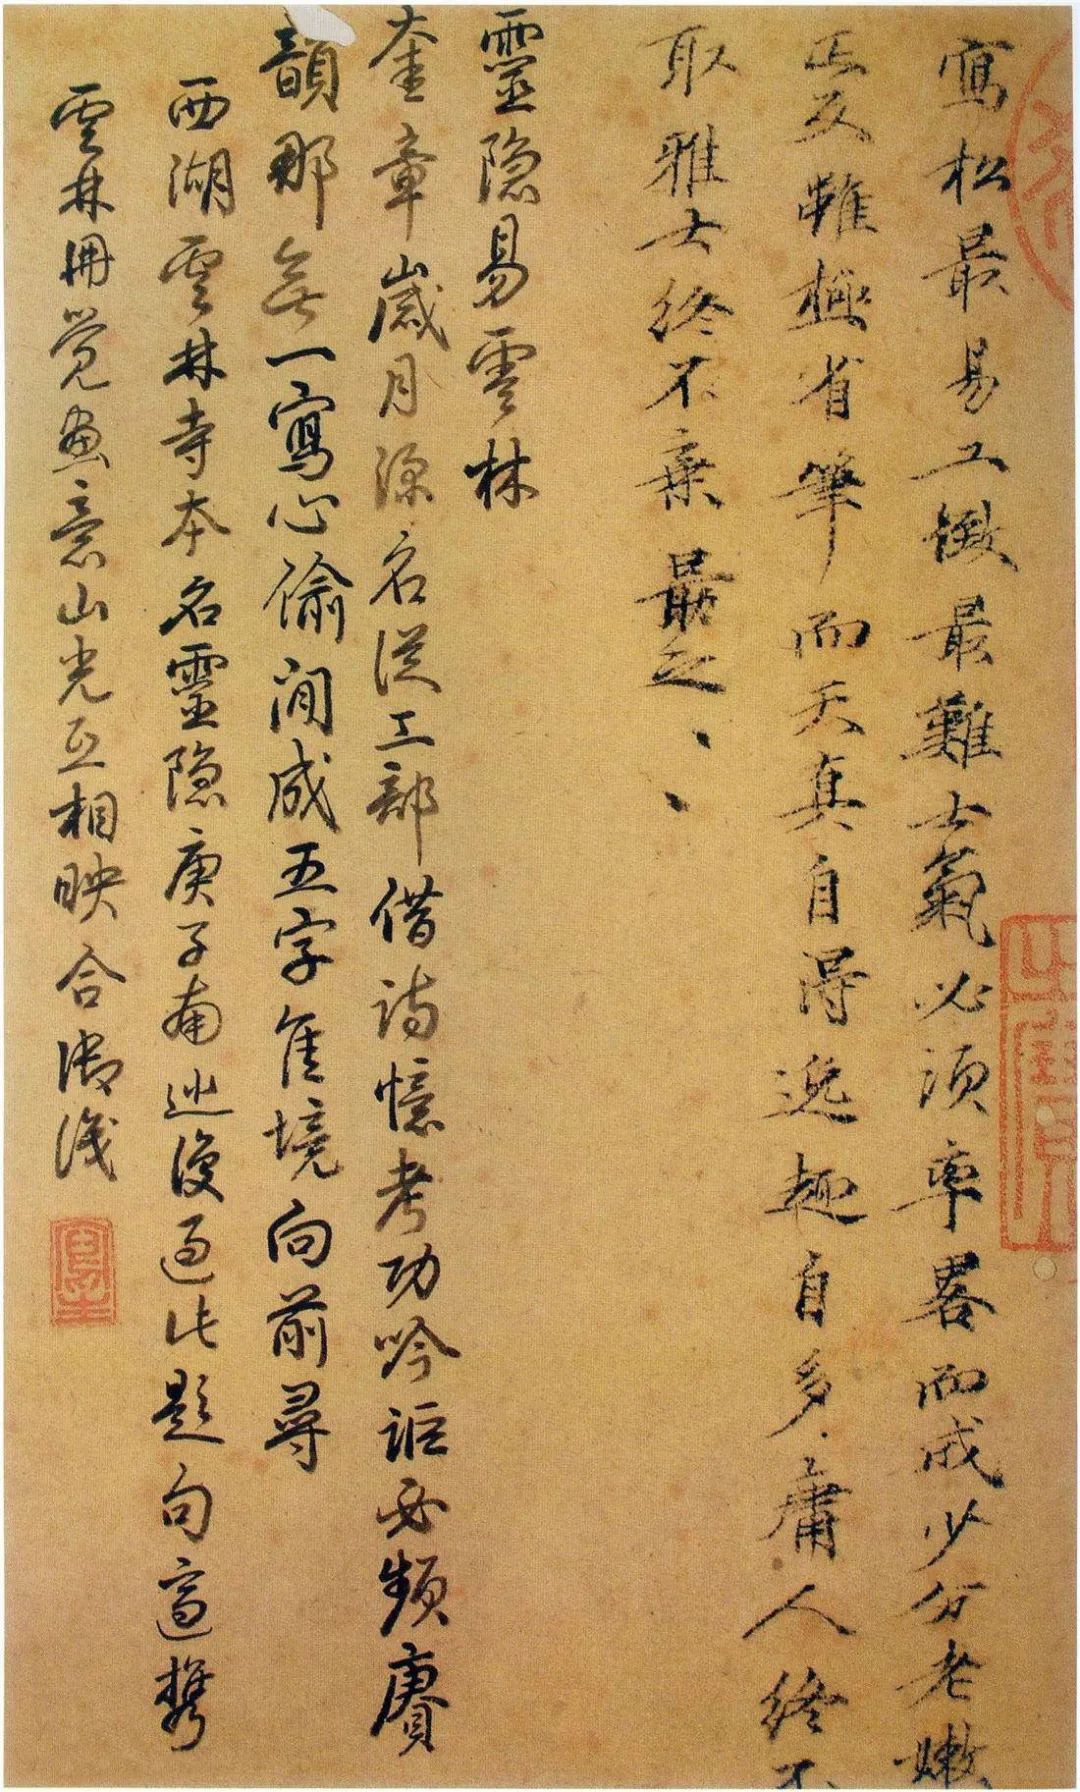 寫松最易工緻最難士氣必須率畧而成少分老嫩
正反雖極省筆而天真自得逸趣自多庸人終不
取雅士終不棄最之、、
靈隐易雲林
奎章歲月深名從工部借詩憶考功吟詎必頻賡
韻那無一寫心偷閒成五字隹境向前尋
西湖雲林寺本名靈隐庚子南巡復過此題句適携
雲林冊覺畫意山光互相映合御識